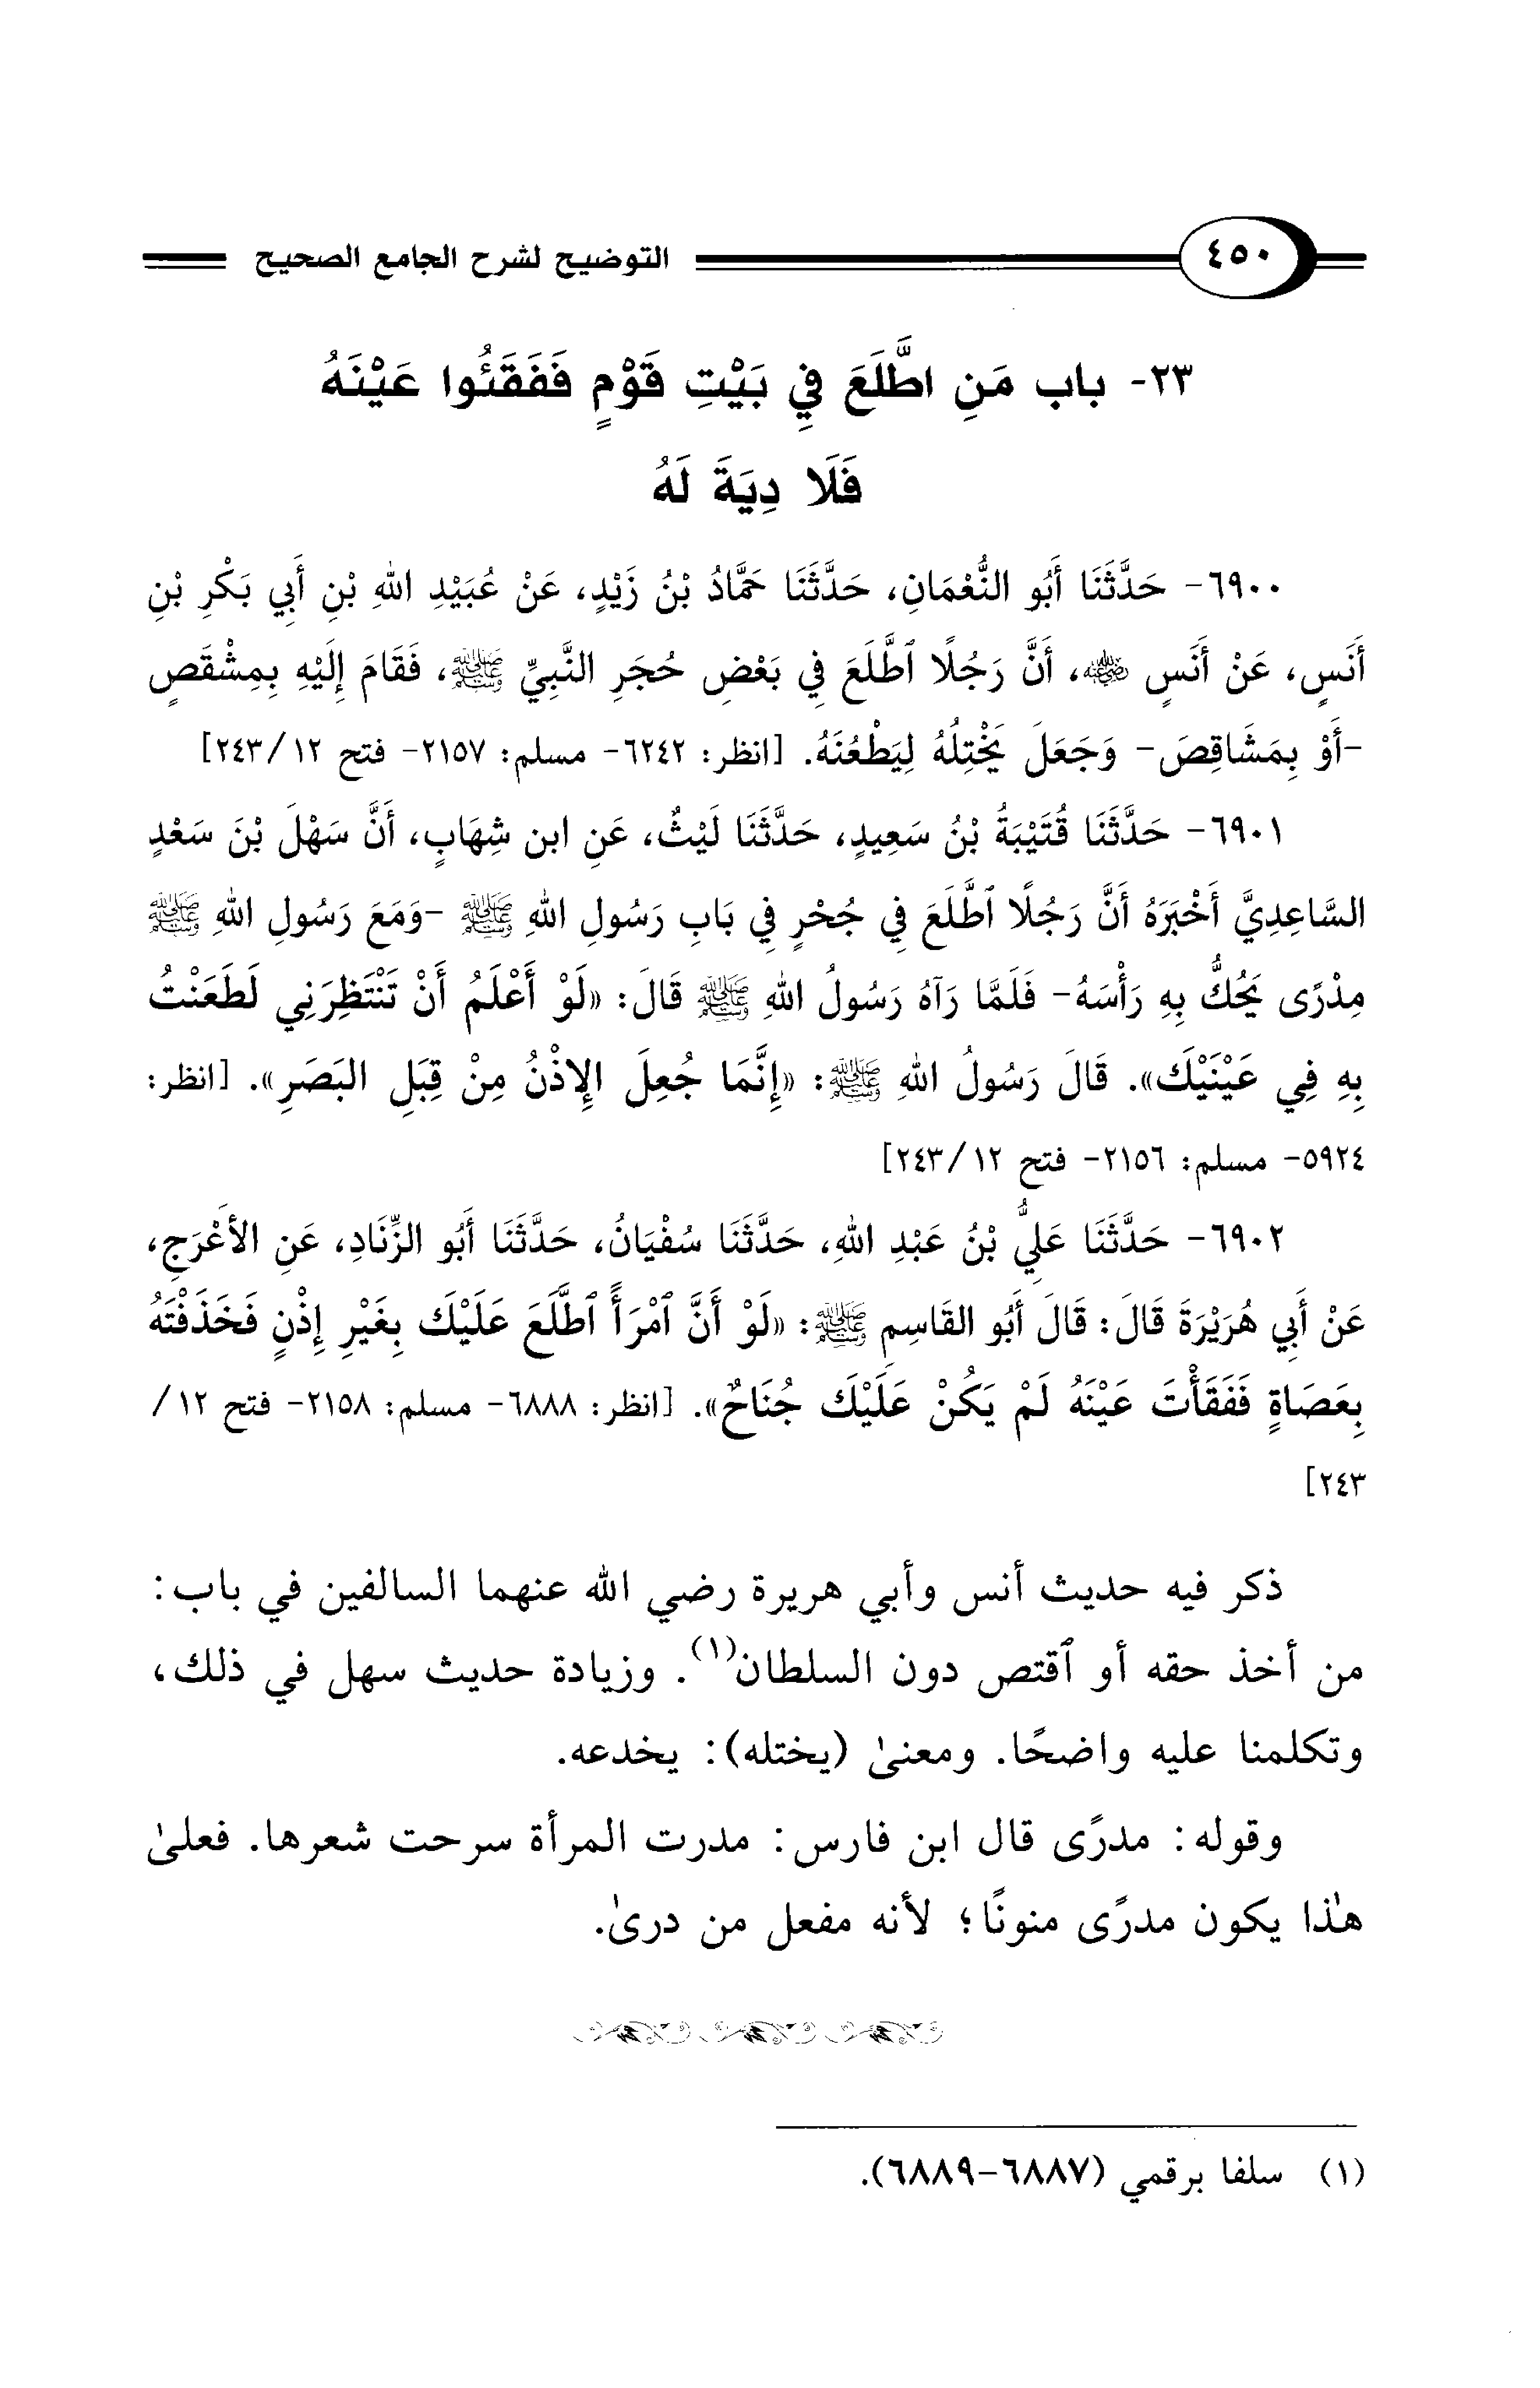 ٤٥٠ التوضيح لشرح الجامع الصحيح
٢٣- باب مَنِ اطَّلَعَ فِي بَيْتِ قَوْمٍ فَفَقَئُوا عَيْنَهُ
فَلَا دِيَةَ لَهُ
٦٩٠٠- حَدَّثَنَا أَبُو النُّعْمَانِ، حَدَّثَنَا حَمَّادُ بْنُ زَيْدٍ، عَنْ عُبَيْدِ اللهِ بْنِ أَبِي بَكْرِ بْنِ
أَنَسٍ، عَنْ أَنَسٍ رضي الله عنه، أَنَّ رَجُلًا ٱطَّلَعَ فِي بَعْضِ حُجَرِ النَّبِيِّ ﷺ، فَقَامَ إِلَيْهِ بِمِشْقَصٍ
-أَوْ بِمَشَاقِصَ- وَجَعَلَ يَخْتِلُهُ لِيَطْعُنَهُ. [انظر: ٦٢٤٢- مسلم: ٢١٥٧- فتح ١٢/ ٢٤٣]
٦٩٠١- حَدَّثَنَا قُتَيْبَةُ بْنُ سَعِيدٍ، حَدَّثَنَا لَيْثٌ، عَنِ ابن شِهَابٍ، أَنَّ سَهْلَ بْنَ سَعْدٍ
السَّاعِدِيَّ أَخْبَرَهُ أَنَّ رَجُلًا ٱطَّلَعَ فِي جُحْرٍ فِي بَابِ رَسُولِ اللهِ ﷺ -وَمَعَ رَسُولِ اللهِ ﷺ
مِدْرًى يَحُكُّ بِهِ رَأْسَهُ- فَلَمَّا رَآهُ رَسُولُ اللهِ ﷺ قَالَ: «لَوْ أَعْلَمُ أَنْ تَنْتَظِرَنِي لَطَعَنْتُ
بِهِ فِي عَيْنَيْكَ». قَالَ رَسُولُ اللهِ ﷺ: «إِنَّمَا جُعِلَ الإِذْنُ مِنْ قِبَلِ البَصَرِ». [انظر:
٥٩٢٤- مسلم: ٢١٥٦- فتح ١٢/ ٢٤٣]
٦٩٠٢- حَدَّثَنَا عَلِيُّ بْنُ عَبْدِ اللهِ، حَدَّثَنَا سُفْيَانُ، حَدَّثَنَا أَبُو الزِّنَادِ، عَنِ الأَعْرَجِ،
عَنْ أَبِي هُرَيْرَةَ قَالَ: قَالَ أَبُو القَاسِمِ ﷺ: «لَوْ أَنَّ ٱمْرَأً ٱطَّلَعَ عَلَيْكَ بِغَيْرِ إِذْنٍ فَخَذَفْتَهُ
بِعَصَاةٍ فَفَقَأْتَ عَيْنَهُ لَمْ يَكُنْ عَلَيْكَ جُنَاحٌ». [انظر: ٦٨٨٨- مسلم: ٢١٥٨- فتح ١٢/
٢٤٣]
ذكر فيه حديث أنس وأبي هريرة رضي الله عنهما السالفين في باب:
من أخذ حقه أو ٱقتص دون السلطان(١). وزيادة حديث سهل في ذلك،
وتكلمنا عليه واضحًا. ومعنىٰ (يختله): يخدعه.
وقوله: مدرًى قال ابن فارس: مدرت المرأة سرحت شعرها. فعلىٰ
هٰذا يكون مدرًى منونًا؛ لأنه مفعل من درىٰ.
(١) سلفا برقمي (٦٨٨٧-٦٨٨٩).